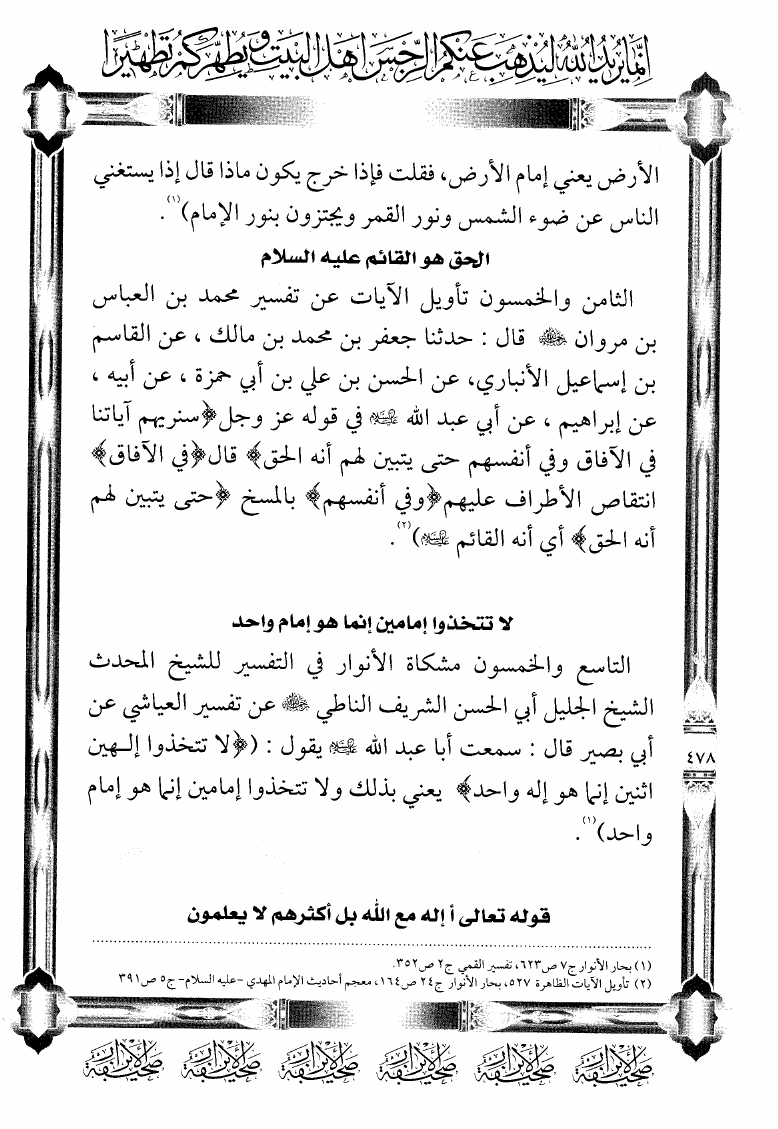 إنما يريد الله ليذهب عنكم الرجس أهل البيت ويطهركم تطهيرا
الأرض يعني إمام الأرض، فقلت فإذا خرج يكون ماذا قال إذا يستغني
الناس عن ضوء الشمس ونور القمر ويجتزون بنور الإمام)(١).
الحق هو القائم عليه السلام
الثامن والخمسون تأويل الآيات عن تفسير محمد بن العباس
بن مروان قال : حدثنا جعفر بن محمد بن مالك ، عن القاسم
بن إسماعيل الأنباري، عن الحسن بن علي بن أبي حمزة ، عن أبيه ،
عن إبراهيم ، عن أبي عبد الله في قوله عز وجل﴿سنريهم آياتنا
في الآفاق وفي أنفسهم حتى يتبين لهم أنه الحق﴾ قال﴿في الآفاق﴾
انتقاص الأطراف عليهم﴿وفي أنفسهم﴾ بالمسخ ﴿حتى يتبين لهم
أنه الحق﴾ أي أنه القائم )(٢).
لا تتخذوا إمامين إنما هو إمام واحد
التاسع والخمسون مشكاة الأنوار في التفسير للشيخ المحدث
الشيخ الجليل أبي الحسن الشريف الناطي عن تفسير العياشي عن
أبي بصير قال : سمعت أبا عبد الله يقول : (﴿لا تتخذوا إلـهين
اثنين إنما هو إله واحد﴾ يعني بذلك ولا تتخذوا إمامين إنما هو إمام
واحد)(١).
٤٧٨
قوله تعالى أ إله مع الله بل أكثرهم لا يعلمون
(١) بحار الأنوار ج٧ ص٦٢٣، تفسير القمي ج٢ ص٣٥٢.
(٢) تأويل الآيات الظاهرة ٥٢٧، بحار الأنوار ج٢٤ ص١٦٤، معجم أحاديث الإمام المهدي -عليه السلام- ج٥ ص٣٩١